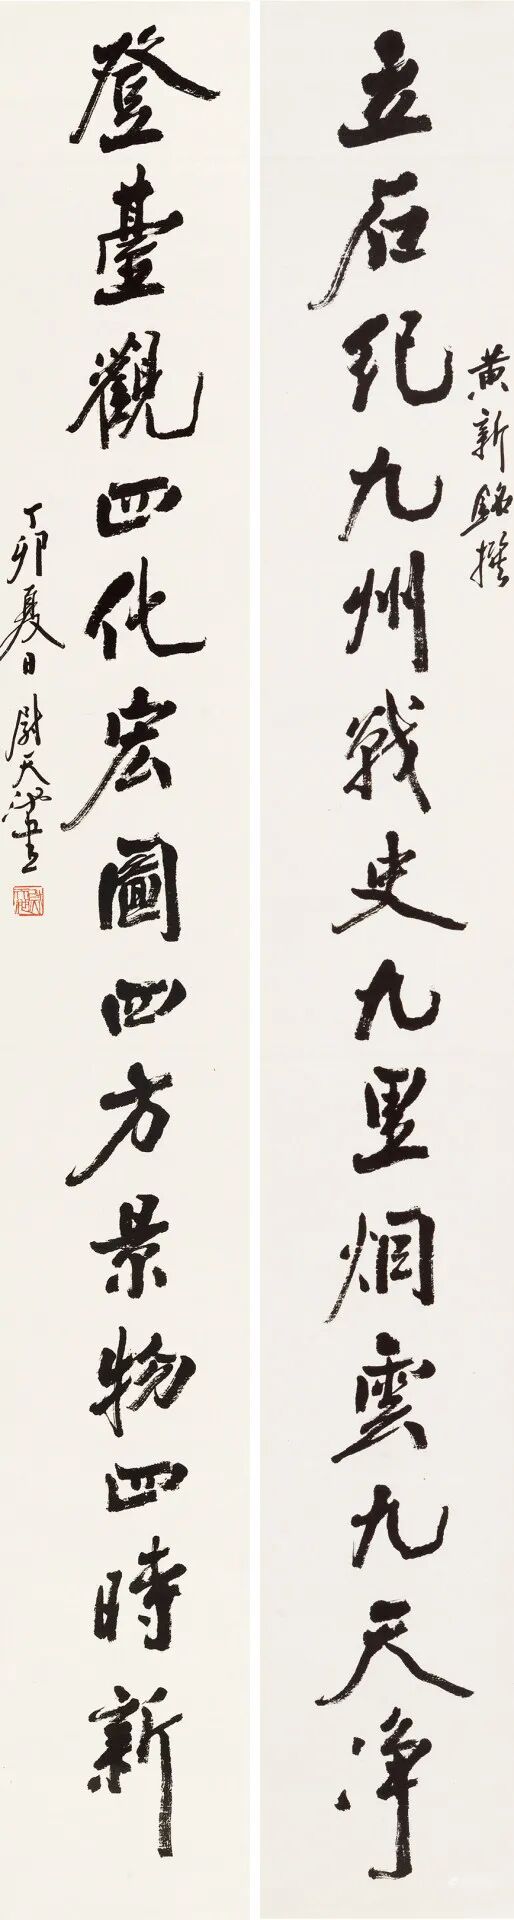 立石纪九州战史九里烟雲九天净
黄新铭撰
登臺觀四化宏圖四方景物四時新
丁卯夏日尉天池書